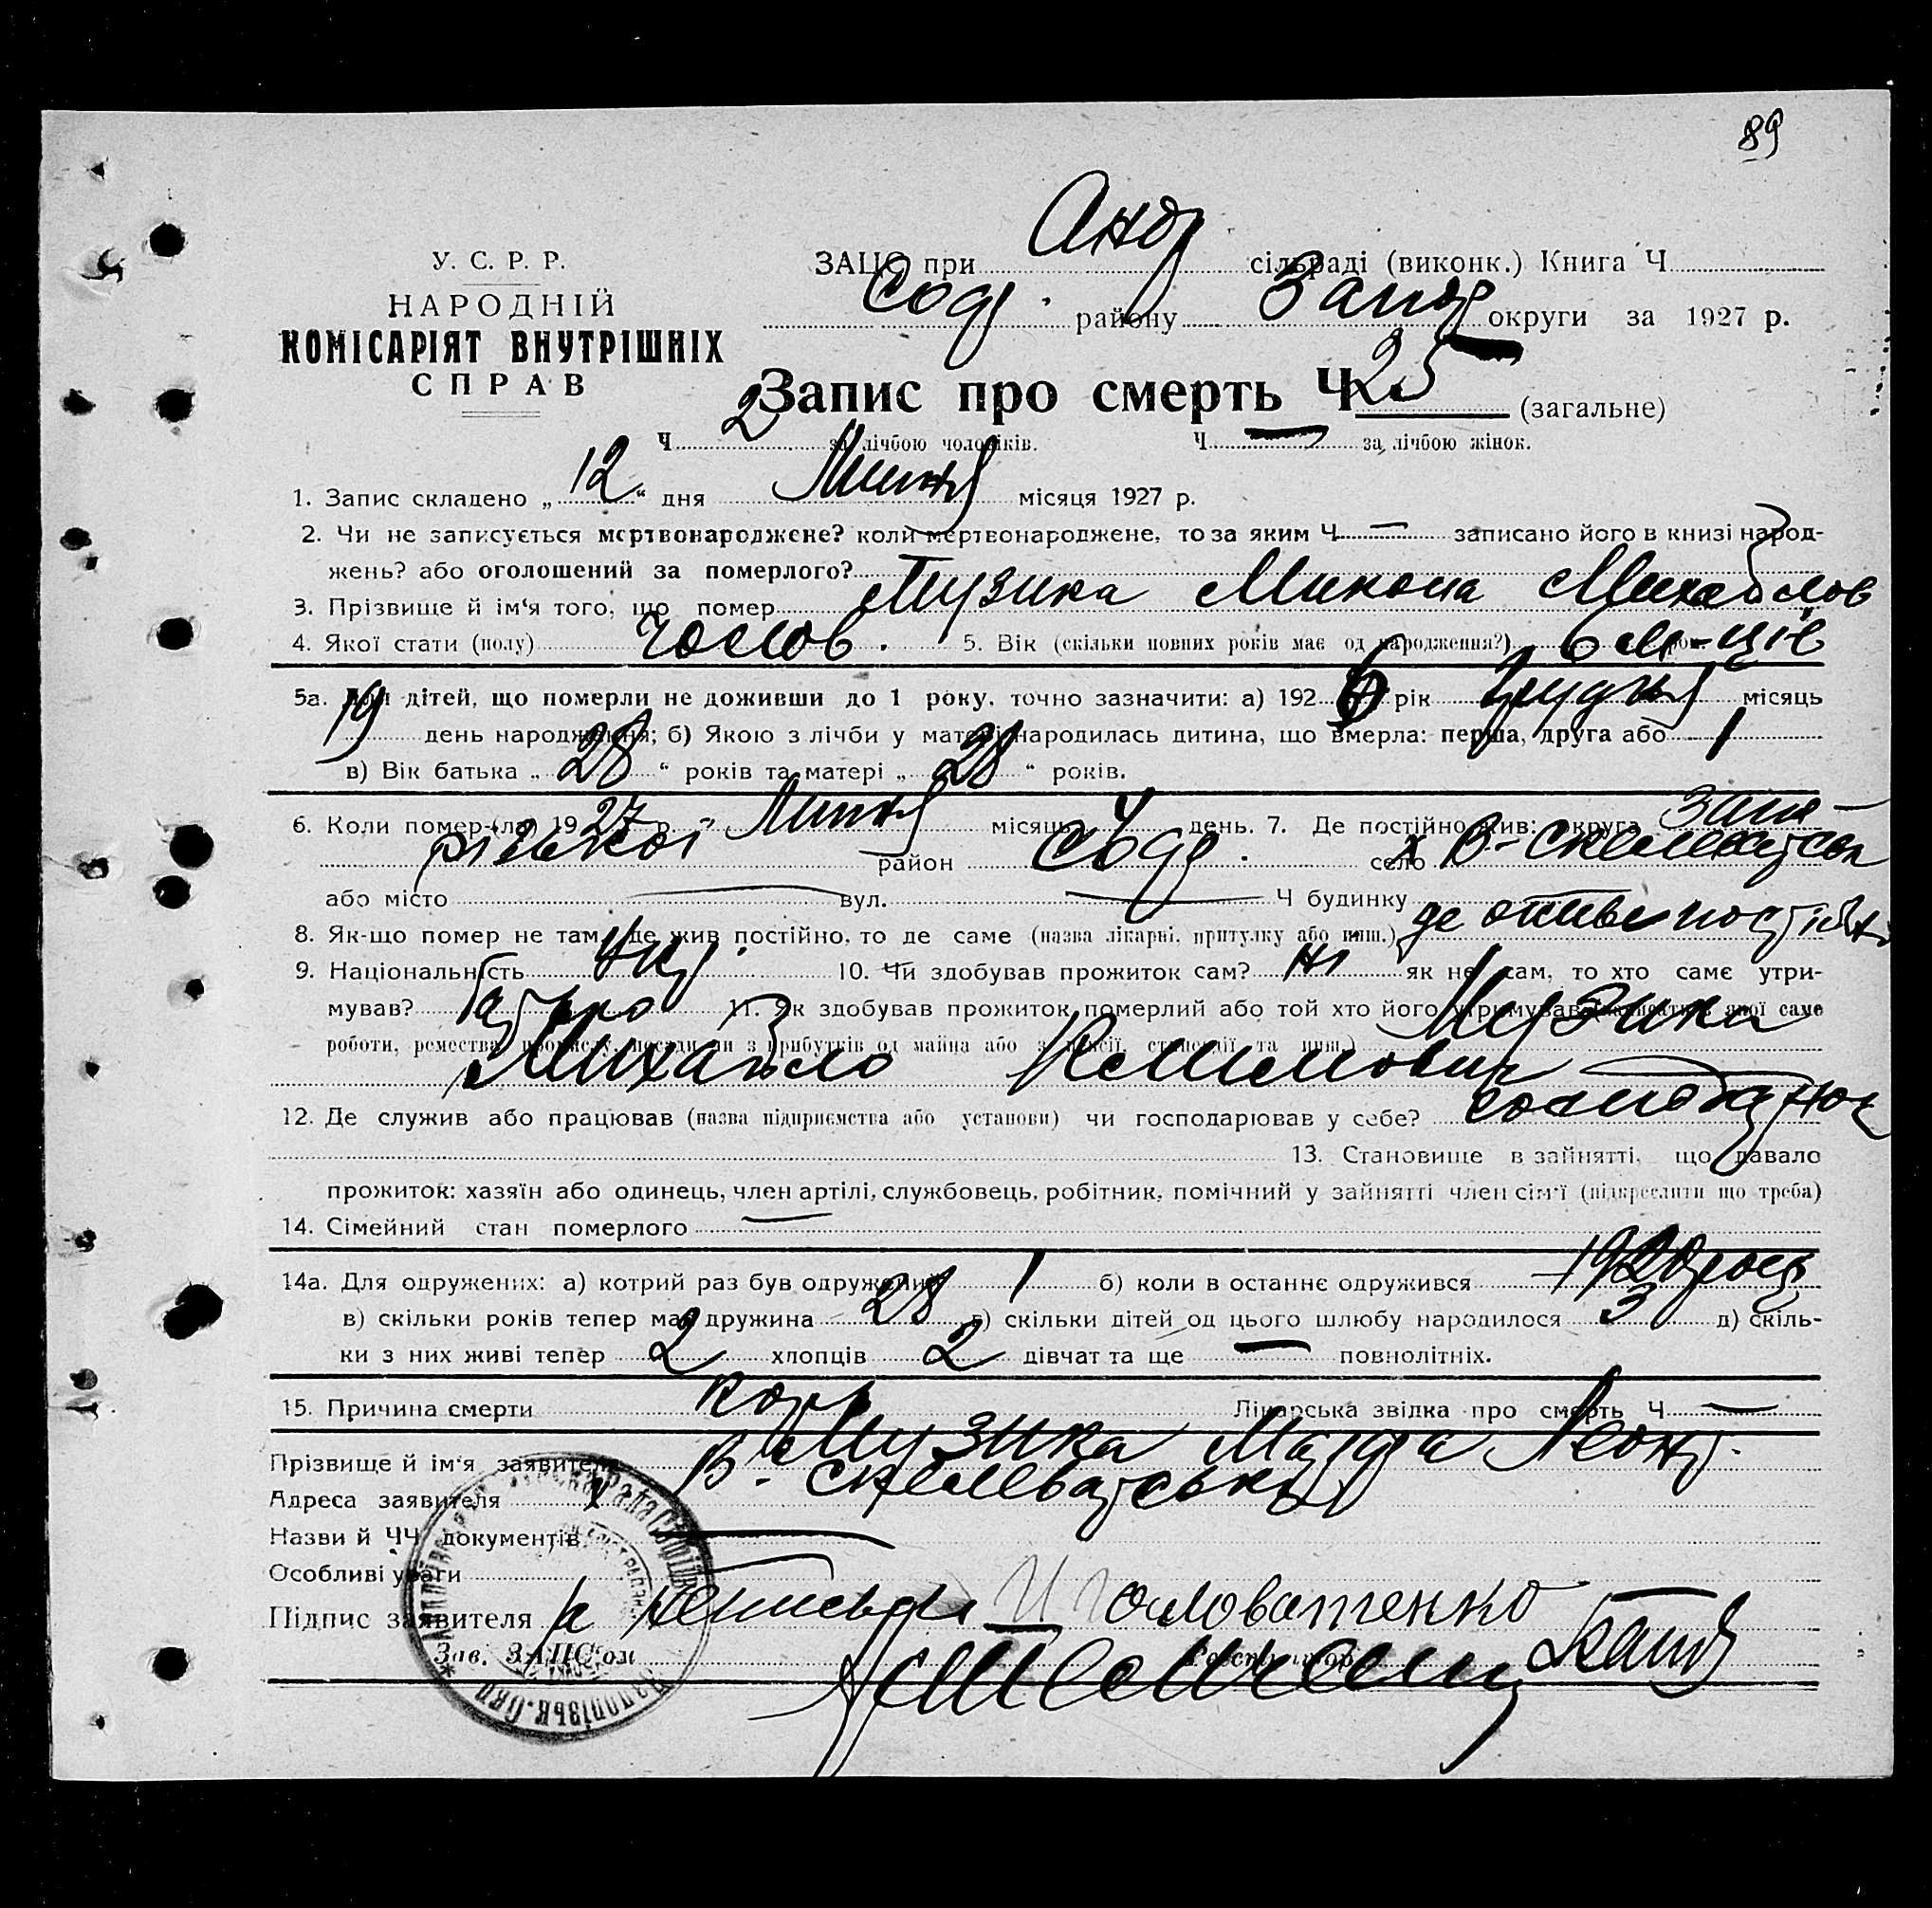 89
У. С. Р. Р.
НАРОДНІЙ
КОМІСАРІЯТ ВНУТРІШНІХ
СПРАВ
ЗАЦС при Андр сільраді (виконк.) Книга Ч
Соф. району Запор округи за 1927 р.
Запис про смерть Ч 25 (загальне)
Ч 2 за лічбою чоловіків. Ч — за лічбою жінок.
1. Запис складено „ 12 “ дня Липня місяця 1927 р.
2. Чи не записується мертвонароджене? коли мертвонароджене, то за яким Ч — записано його в книзі народ-
жень? або оголошений за померлого?
3. Прізвище й ім'я того, що помер Музика Микола Михайлов
4. Якої стати (полу) чолов. 5. Вік (скільки повних років має од народження?) 6 м-ців
5а. Для дітей, що померли не доживши до 1 року, точно зазначити: а) 192 6 рік Грудня місяць
19 день народження; б) Якою з лічби у матері народилась дитина, що вмерла: перша, друга або 1
в) Вік батька „ 28 “ років та матері „ 28 “ років.
6. Коли помер-(ла) 19 27 р. Липня місяць 4 день. 7. Де постійно жив: округа Запо-
різької район Соф. село х В-Скелеватськ
або місто — вул. — Ч будинку
8. Як-що помер не там, де жив постійно, то де саме (назва лікарні, притулку або инш.) де живе постійно
9. Національність Укр. 10. Чи здобував прожиток сам? ні як не сам, то хто саме утри-
мував? батько 11. Як здобував прожиток померлий або той хто його утримував Музика
роботи, ремества, промислу, посади чи з прибутків од майна або з пенсії, стипендії та инш.)
Михайло Климович
12. Де служив або працював (назва підприємства або установи) чи господарював у себе?
13. Становище в зайнятті, що давало
прожиток: хазяїн або одинець, член артілі, службовець, робітник, помічний у зайнятті член сім'ї (підкреслити що треба)
14. Сімейний стан померлого —
14а. Для одружених: а) котрий раз був одружений 1 б) коли в останнє одружився 1920 року
в) скільки років тепер має дружина 28 г) скільки дітей од цього шлюбу народилося 3 д) скіль-
ки з них живі тепер 2 хлопців 2 дівчат та ще — повнолітніх.
15. Причина смерти корь Лікарська звідка про смерть Ч —
Прізвище й ім'я заявителя Музика Марфа Леонт.
Адреса заявителя х В. Скелеватський
Назви й ЧЧ документів —
Особливі уваги
Підпис заявителя Головатенко
Зав. ЗАЦС'ом Реєстратор